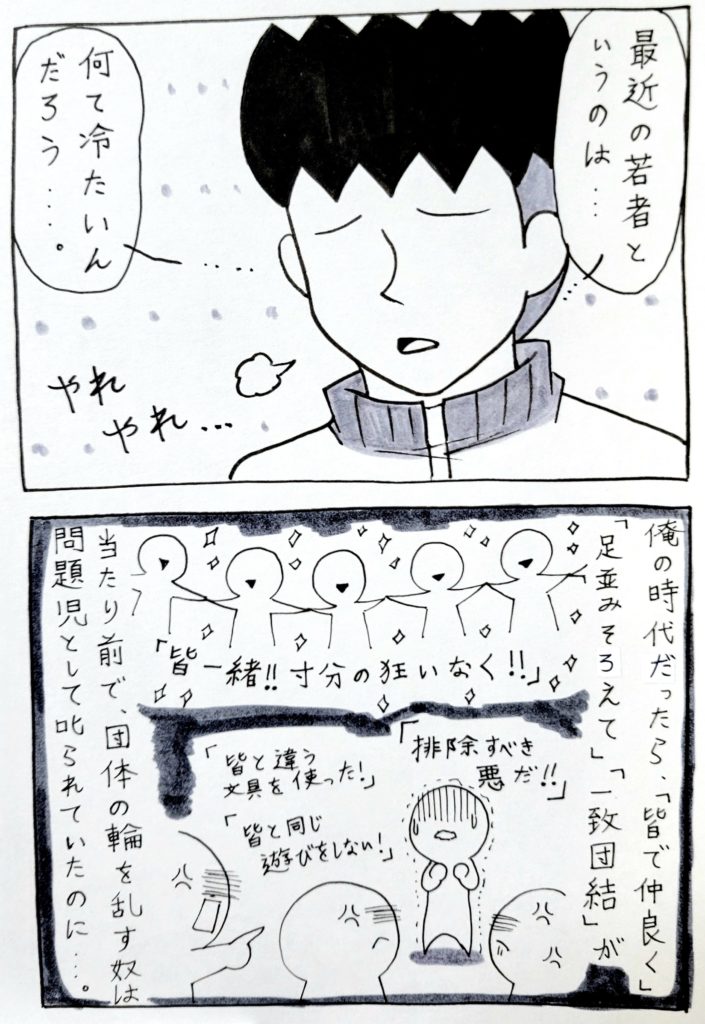 最近の若者と
いうのは…
何て冷たいん
だろう…。
やれ
やれ…
俺の時代だったら、「皆で仲良く」
「足並みそろえて」「一致団結」が
「皆一緒!!寸分の狂いなく!!」
「排除すべき
悪だ!!」
「皆と違う
文具を使った!」
「皆と同じ
遊びをしない!」
当たり前で、団体の輪を乱す奴は
問題児として叱られていたのに…。